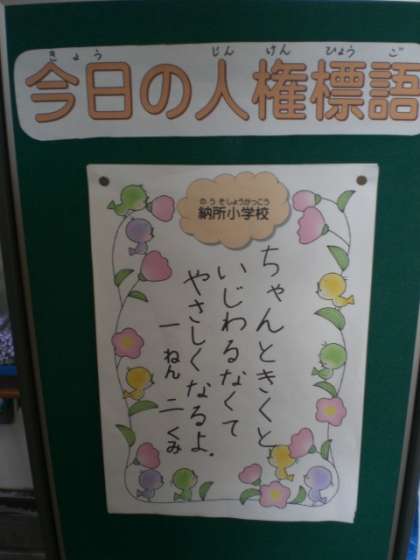 きょう じんけんひょうご
今日の人権標語
のうそしょうがっこう
納所小学校
ちゃんときくと
いじわるなくて
やさしくなるよ.
一ねん二くみ